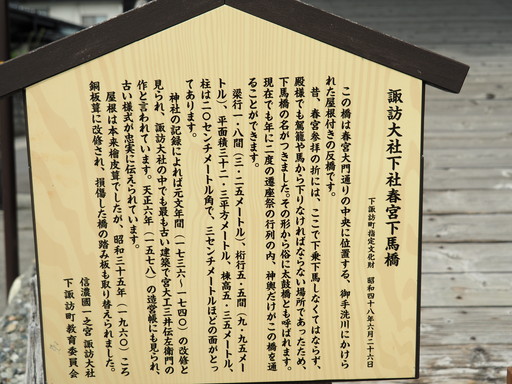 諏訪大社下社春宮下馬橋
下諏訪町指定文化財　昭和四十八年六月二十六日
この橋は春宮大門通りの中央に位置する、御手洗川にかけら
れた屋根付きの反橋です。
昔、春宮参拝の折には、ここで下乗下馬しなくてはならず、
殿様でも駕籠や馬から下りなければならない場所であったため、
下馬橋の名がつきました。その形から俗に太鼓橋とも呼ばれます。
現在でも年に二度の遷座祭の行列の内、神輿だけがこの橋を通
ることができます。
梁行一・八間（三・二五メートル）、桁行五・五間（九・九五メー
トル）、平面積三十二・三平方メートル、棟高五・三五メートル、
柱は二〇センチメートル角で、三センチメートルほどの面がとっ
てあります。
神社の記録によれば元文年間（一七三六～一七四〇）の改修と
見られ、諏訪大社の中でも最も古い建築で宮大工三井伝左衛門の
作と言われています。天正六年（一五七八）の造営帳にも見られ、
古い様式が忠実に伝えられています。
屋根は本来檜皮葺でしたが、昭和三十五年（一九六〇）ころ
銅板葺に改修され、損傷した橋の踏み板も取り替えられました。
信濃國一之宮　諏訪大社
下諏訪町教育委員会